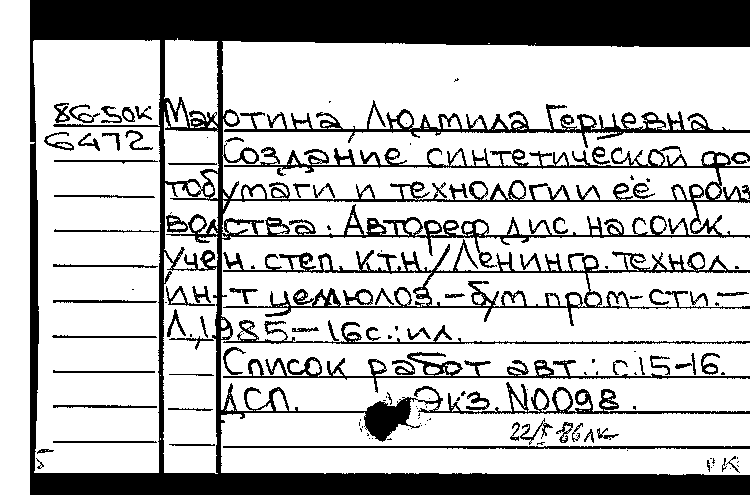 86-50К Махотина, Людмила Герцевна.
6472 Создание синтетической фо
тобумаги и технологии её произ
водства: Автореф. дис. на соиск.
учен. степ. к.т.н. / Ленингр. технол.
ин-т целюлоз.-бум. пром-сти.—
Л., 1985.— 16с.: ил.
Список работ авт.: с.15-16.
ДСП. Экз. N0098.
22/I 86 лк
5 РК